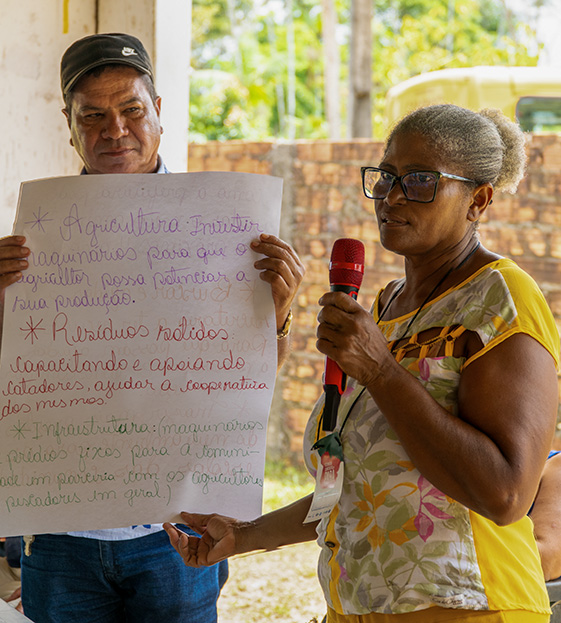 * Agricultura: Investir
maquinários para que o
agricultor possa potenciar a
sua produção.
* Resíduos sólidos
capacitando e apoiando
catadores, ajudar a cooperativa
dos mesmos.
* Infraestrutura: (maquinários
prédios fixos para a comuni-
dade em parceria com os agricultores
pescadores em geral)